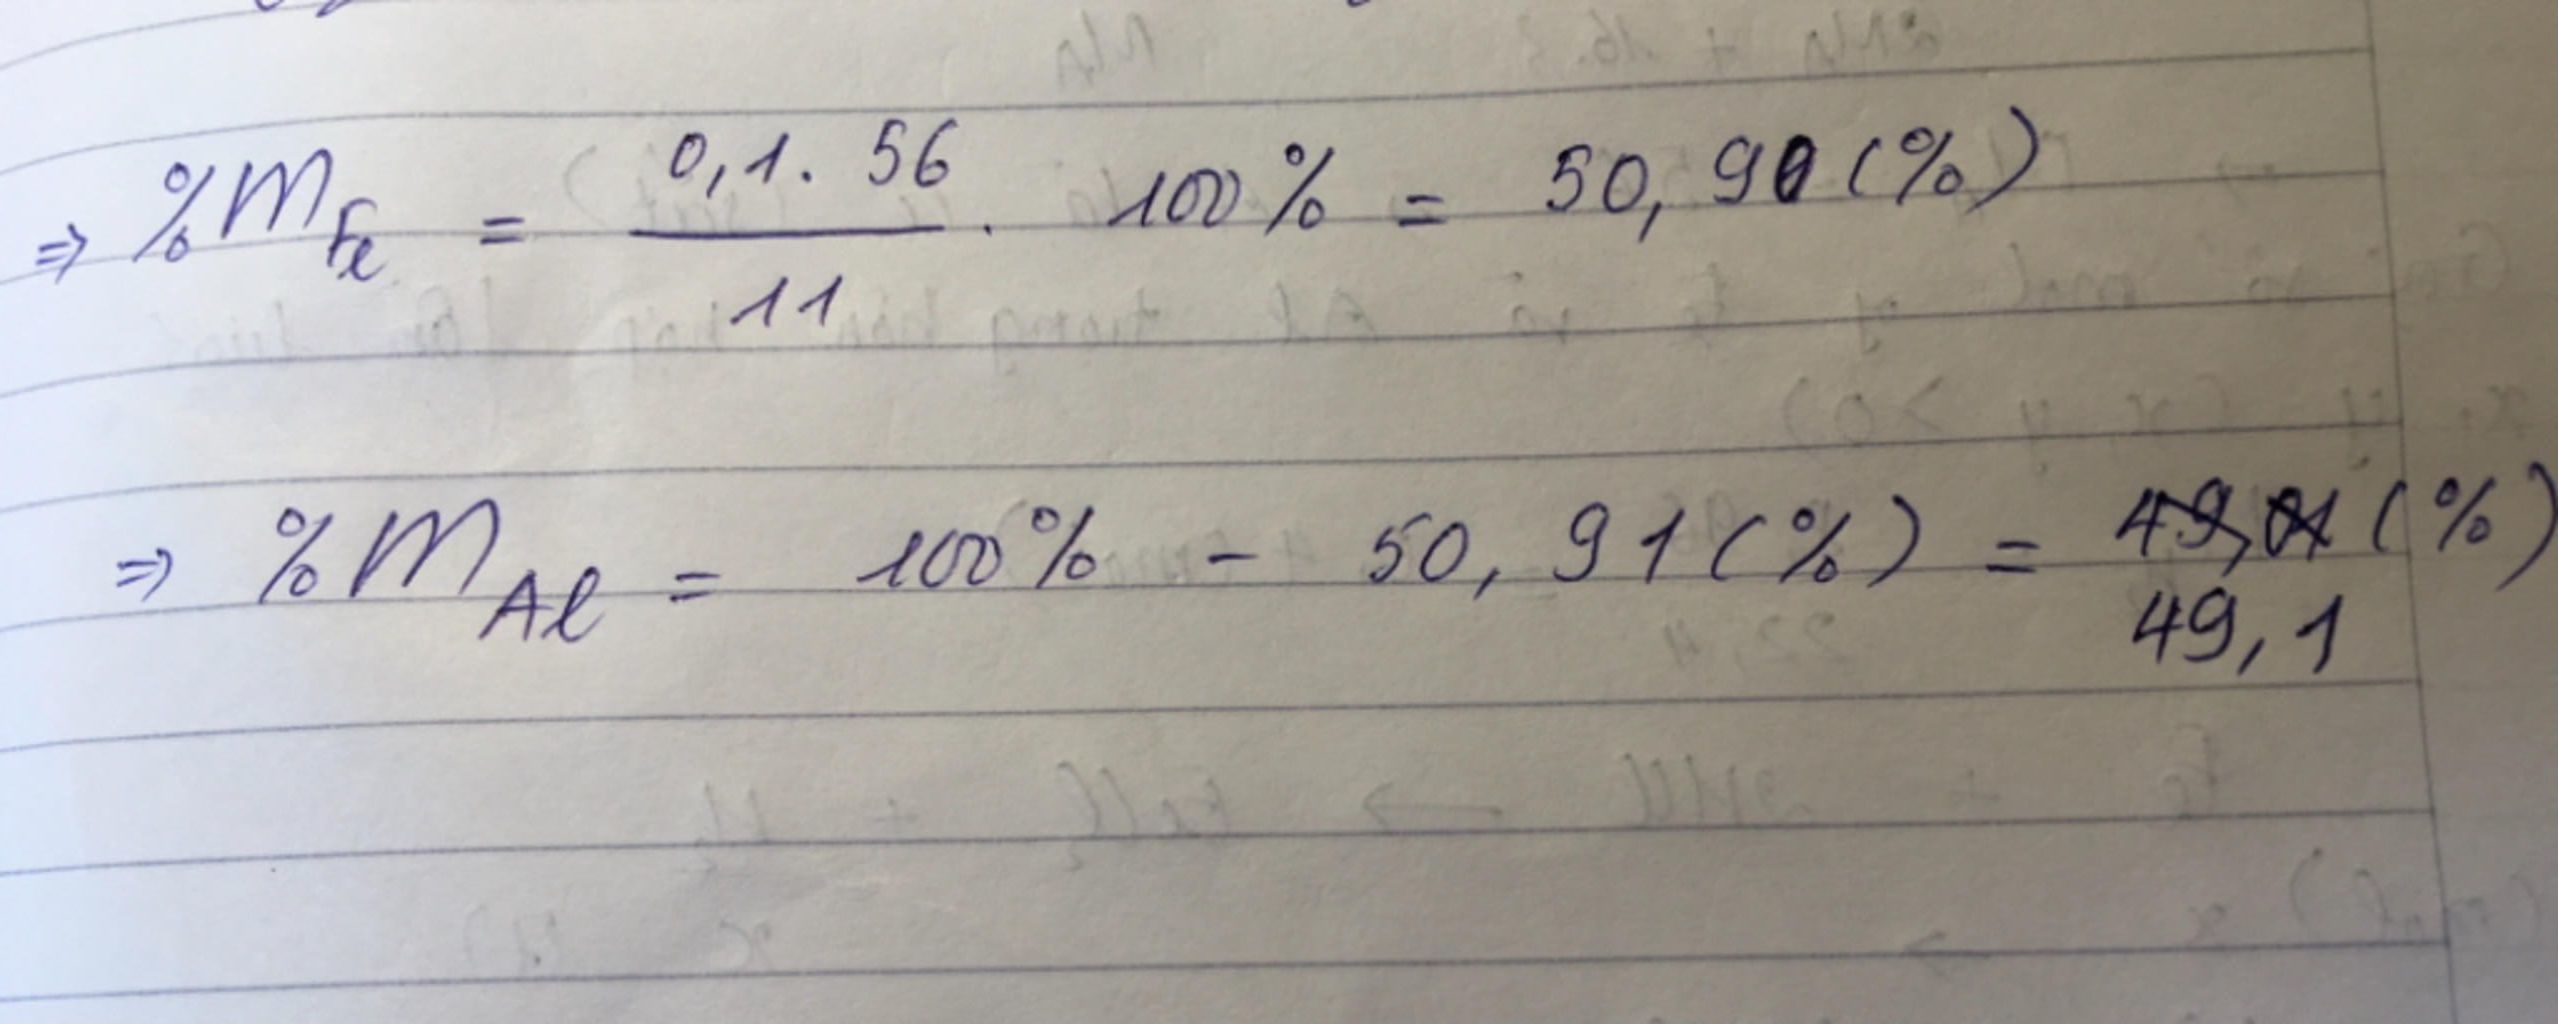 ⇒ %m_Fe = 0,1. 56 / 11 . 100% = 50,91 (%)
⇒ %m_Al = 100% - 50,91 (%) = (%)
49,1